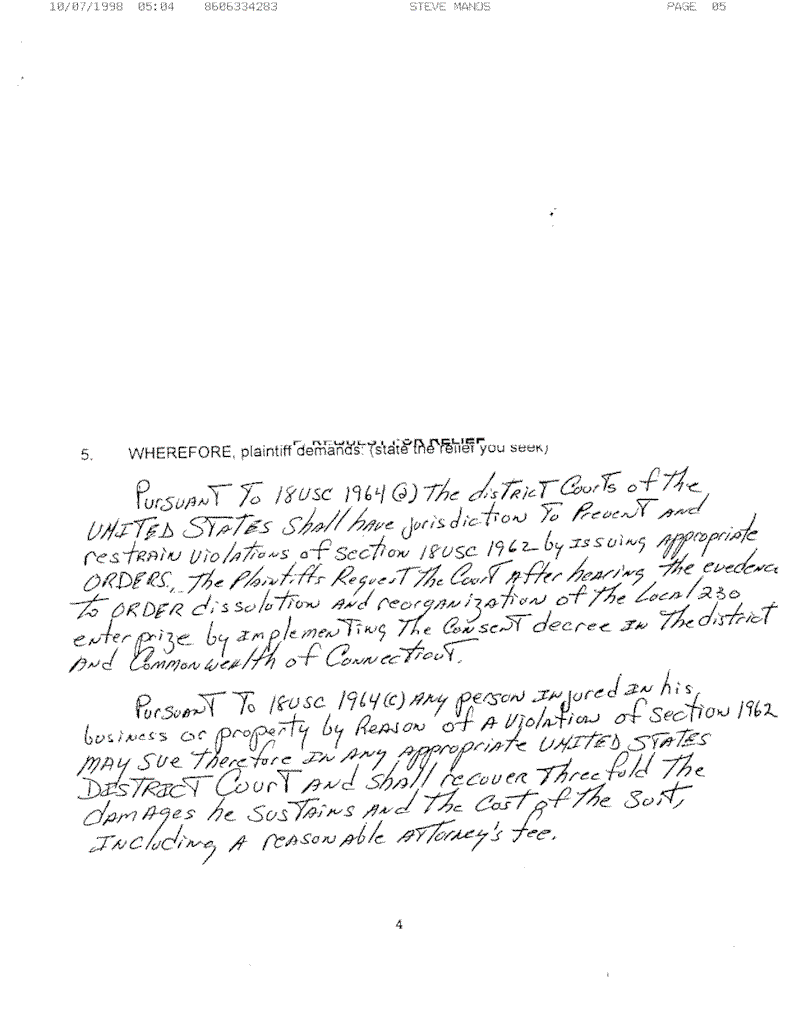 10/07/1998 05:04 8606334283 STEVE MANOS PAGE 05
REQUEST FOR RELIEF
5. WHEREFORE, plaintiff demands: (state the relief you seek)
PURSUANT To 18USC 1964(a) The disTRICT CourTs of The
UNITED STATES Shall have jorisdicTion To PrevenT AND
resTRAIN violations of section 18USC 1962 by Issuing Appropriate
ORDERS. The Plaintiffs RequesT The CourT After hearing The evedence
To ORDER dissolution AND reorganization of The Local 230
enterprize by ImplemenTing The ConsenT decree IN The district
AND Commonwealth of ConnecticuT.
PursuanT To 18USC 1964(c) Any person INjured IN his
business or property by Reason of A violation of section 1962
MAY sue Therefore IN ANY Appropriate UNITED STATES
DISTRICT CourT AND shall recover Threefold The
damages he susTains AND The cost of The Suit,
INcluding A reasonable ATTorney's fee.
4